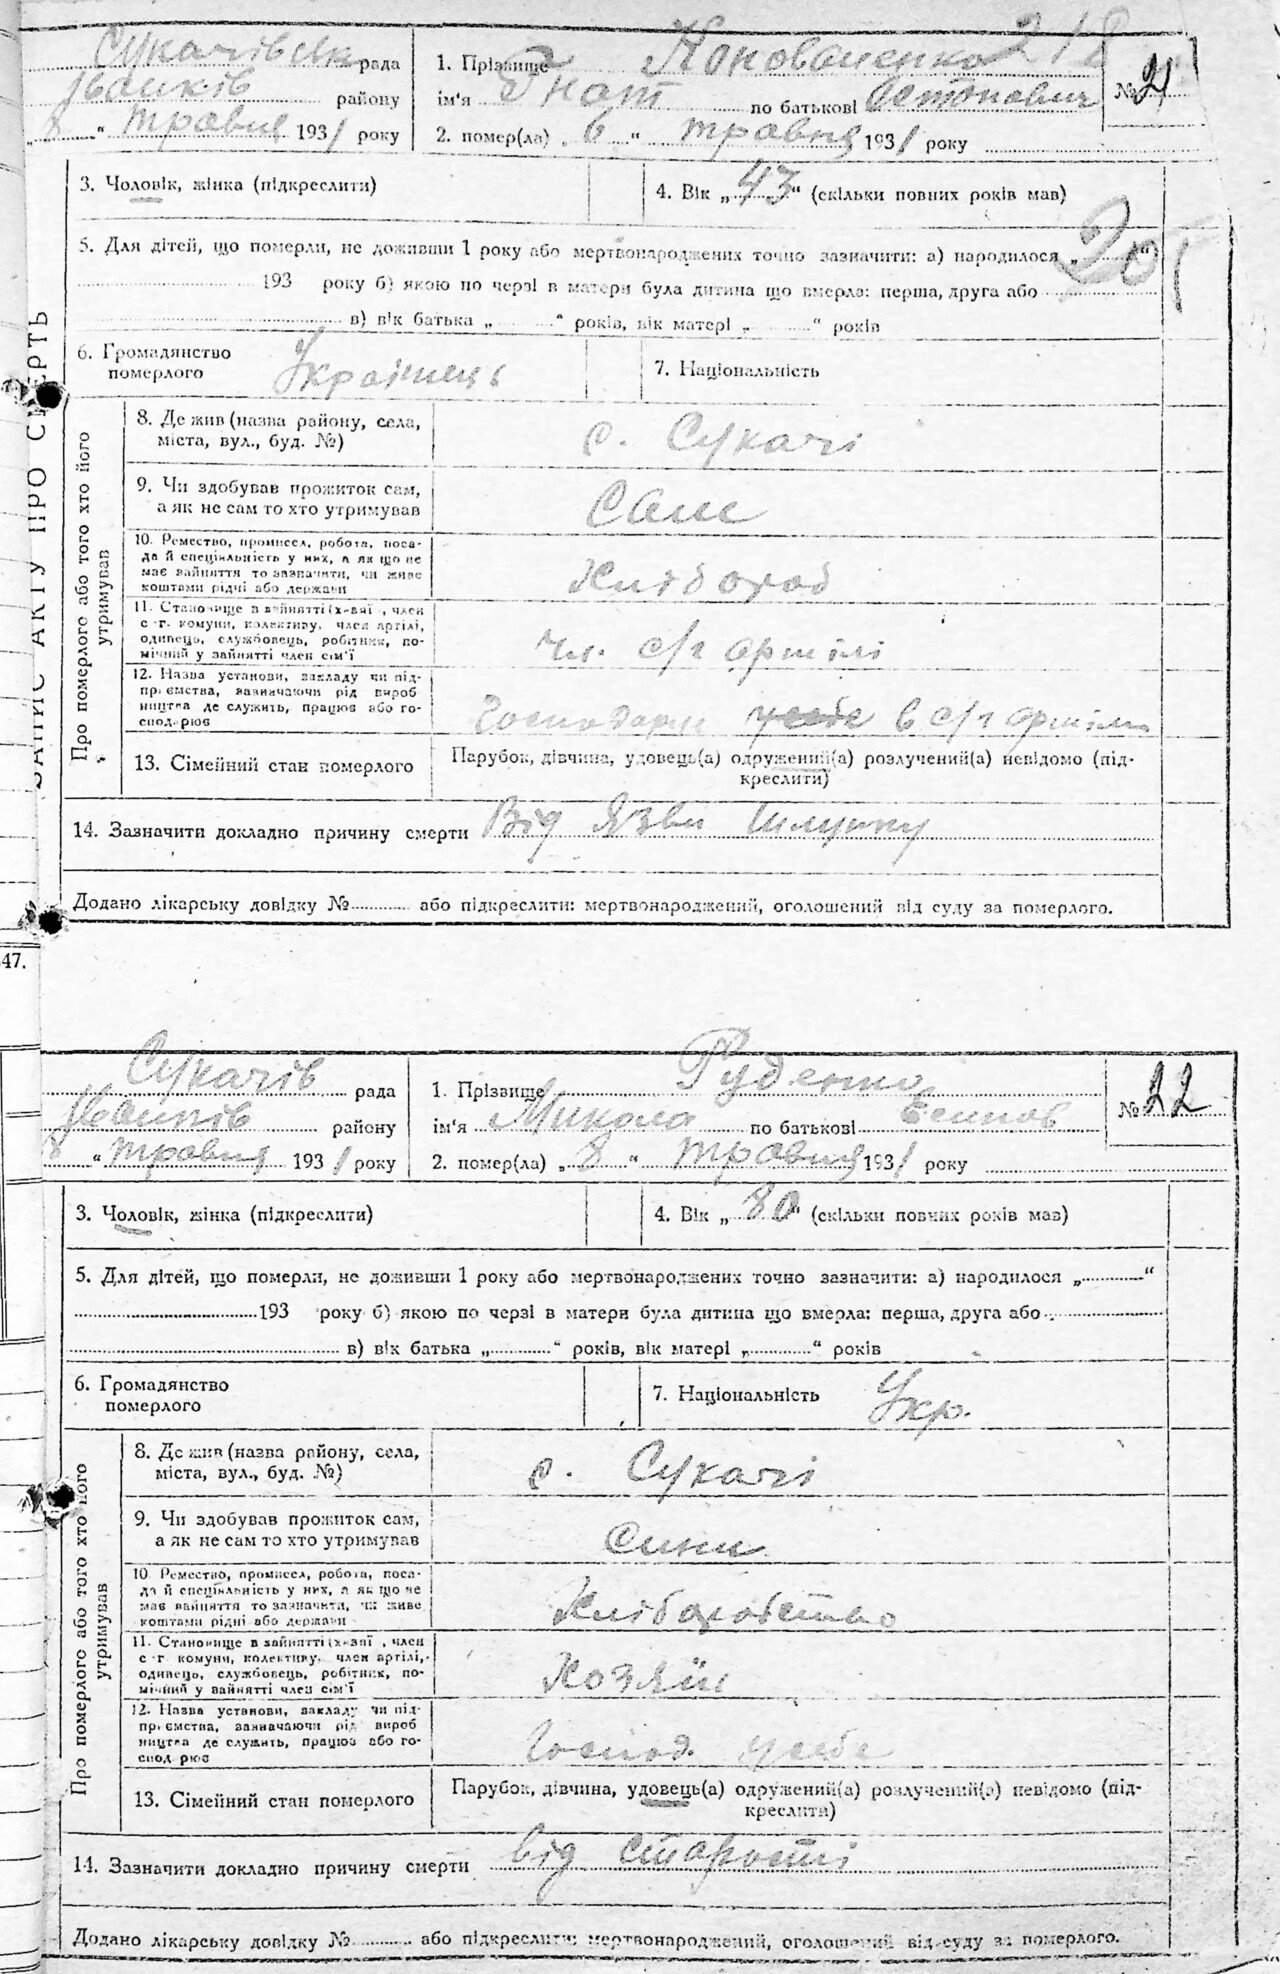 218
Сукачівська рада
Іванків району
„ 8 “ травня 1931 року
1. Прізвище Коноваленко
ім'я Гнат по батькові Остапович
2. помер(ла) „ 6 “ травня 1931 року
№ 21
3. Чоловік, жінка (підкреслити)
4. Вік „ 43 “ (скільки повних років мав)
5. Для дітей, що померли, не доживши 1 року або мертвонароджених точно зазначити: а) народилося „ “
193 року б) якою по черзі в матери була дитина що вмерла: перша, друга або
в) вік батька „ “ років, вік матері „ “ років
20
6. Громадянство
померлого Українець
7. Національність
ЗАПИС АКТУ ПРО СМЕРТЬ
Про померлого або того хто його
утримував
8. Де жив (назва району, села,
міста, вул., буд. №) с. Сукачі
9. Чи здобував прожиток сам,
а як не сам то хто утримував Сам
10. Ремество, промисел, робота, поса-
да й спеціяльність у них, а як що не
має зайняття то зазначити, чи живе
коштами рідні або держави Хлібороб
11. Становище в зайнятті (х-зяї , член
с-г. комуни, колективу, член артілі,
одинець, службовець, робітник, по-
мічний у зайнятті член сім'ї чл. с/г артілі
12. Назва установи, закладу чи під-
приємства, зазначаючи рід вироб
ництва де служить, працює або го-
сподарює в с/г артіль
13. Сімейний стан померлого
Парубок, дівчина, удовець(а) одружений(а) розлучений(а) невідомо (під-
креслити)
14. Зазначити докладно причину смерти Від язви шлунку
Додано лікарську довідку № або підкреслити: мертвонароджений, оголошений від суду за померлого.
47.
Сукачів рада
Іванків району
8 “ травня 1931 року
1. Прізвище Руденко
ім'я Микола по батькові Есипов
2. помер(ла) „ 8 “ травня 1931 року
№ 22
3. Чоловік, жінка (підкреслити)
4. Вік „ 80 “ (скільки повних років мав)
5. Для дітей, що померли, не доживши 1 року або мертвонароджених точно зазначити: а) народилося „ “
193 року б) якою по черзі в матери була дитина що вмерла: перша, друга або
в) вік батька „ “ років, вік матері „ “ років
6. Громадянство
померлого
7. Національність Укр.
Про померлого або того хто його
утримував
8. Де жив (назва району, села,
міста, вул., буд. №) с. Сукачі
9. Чи здобував прожиток сам,
а як не сам то хто утримував сини
10. Ремество, промисел, робота, поса-
да й спеціяльність у них, а як що не
має зайняття то зазначити, чи живе
коштами рідні або держави Хліборобство
11. Становище в зайнятті (х-зяї , член
с-г. комуни, колективу, член артілі,
одинець, службовець, робітник, по-
мічний у зайнятті член сім'ї Хозяїн
12. Назва установи, закладу чи під-
приємства, зазначаючи рід вироб
ництва де служить, працює або го-
сподарює Господ. у себе
13. Сімейний стан померлого
Парубок, дівчина, удовець(а) одружений(а) розлучений(а) невідомо (під-
креслити)
14. Зазначити докладно причину смерти від старості
Додано лікарську довідку № або підкреслити: мертвонароджений, оголошений від суду за померлого.